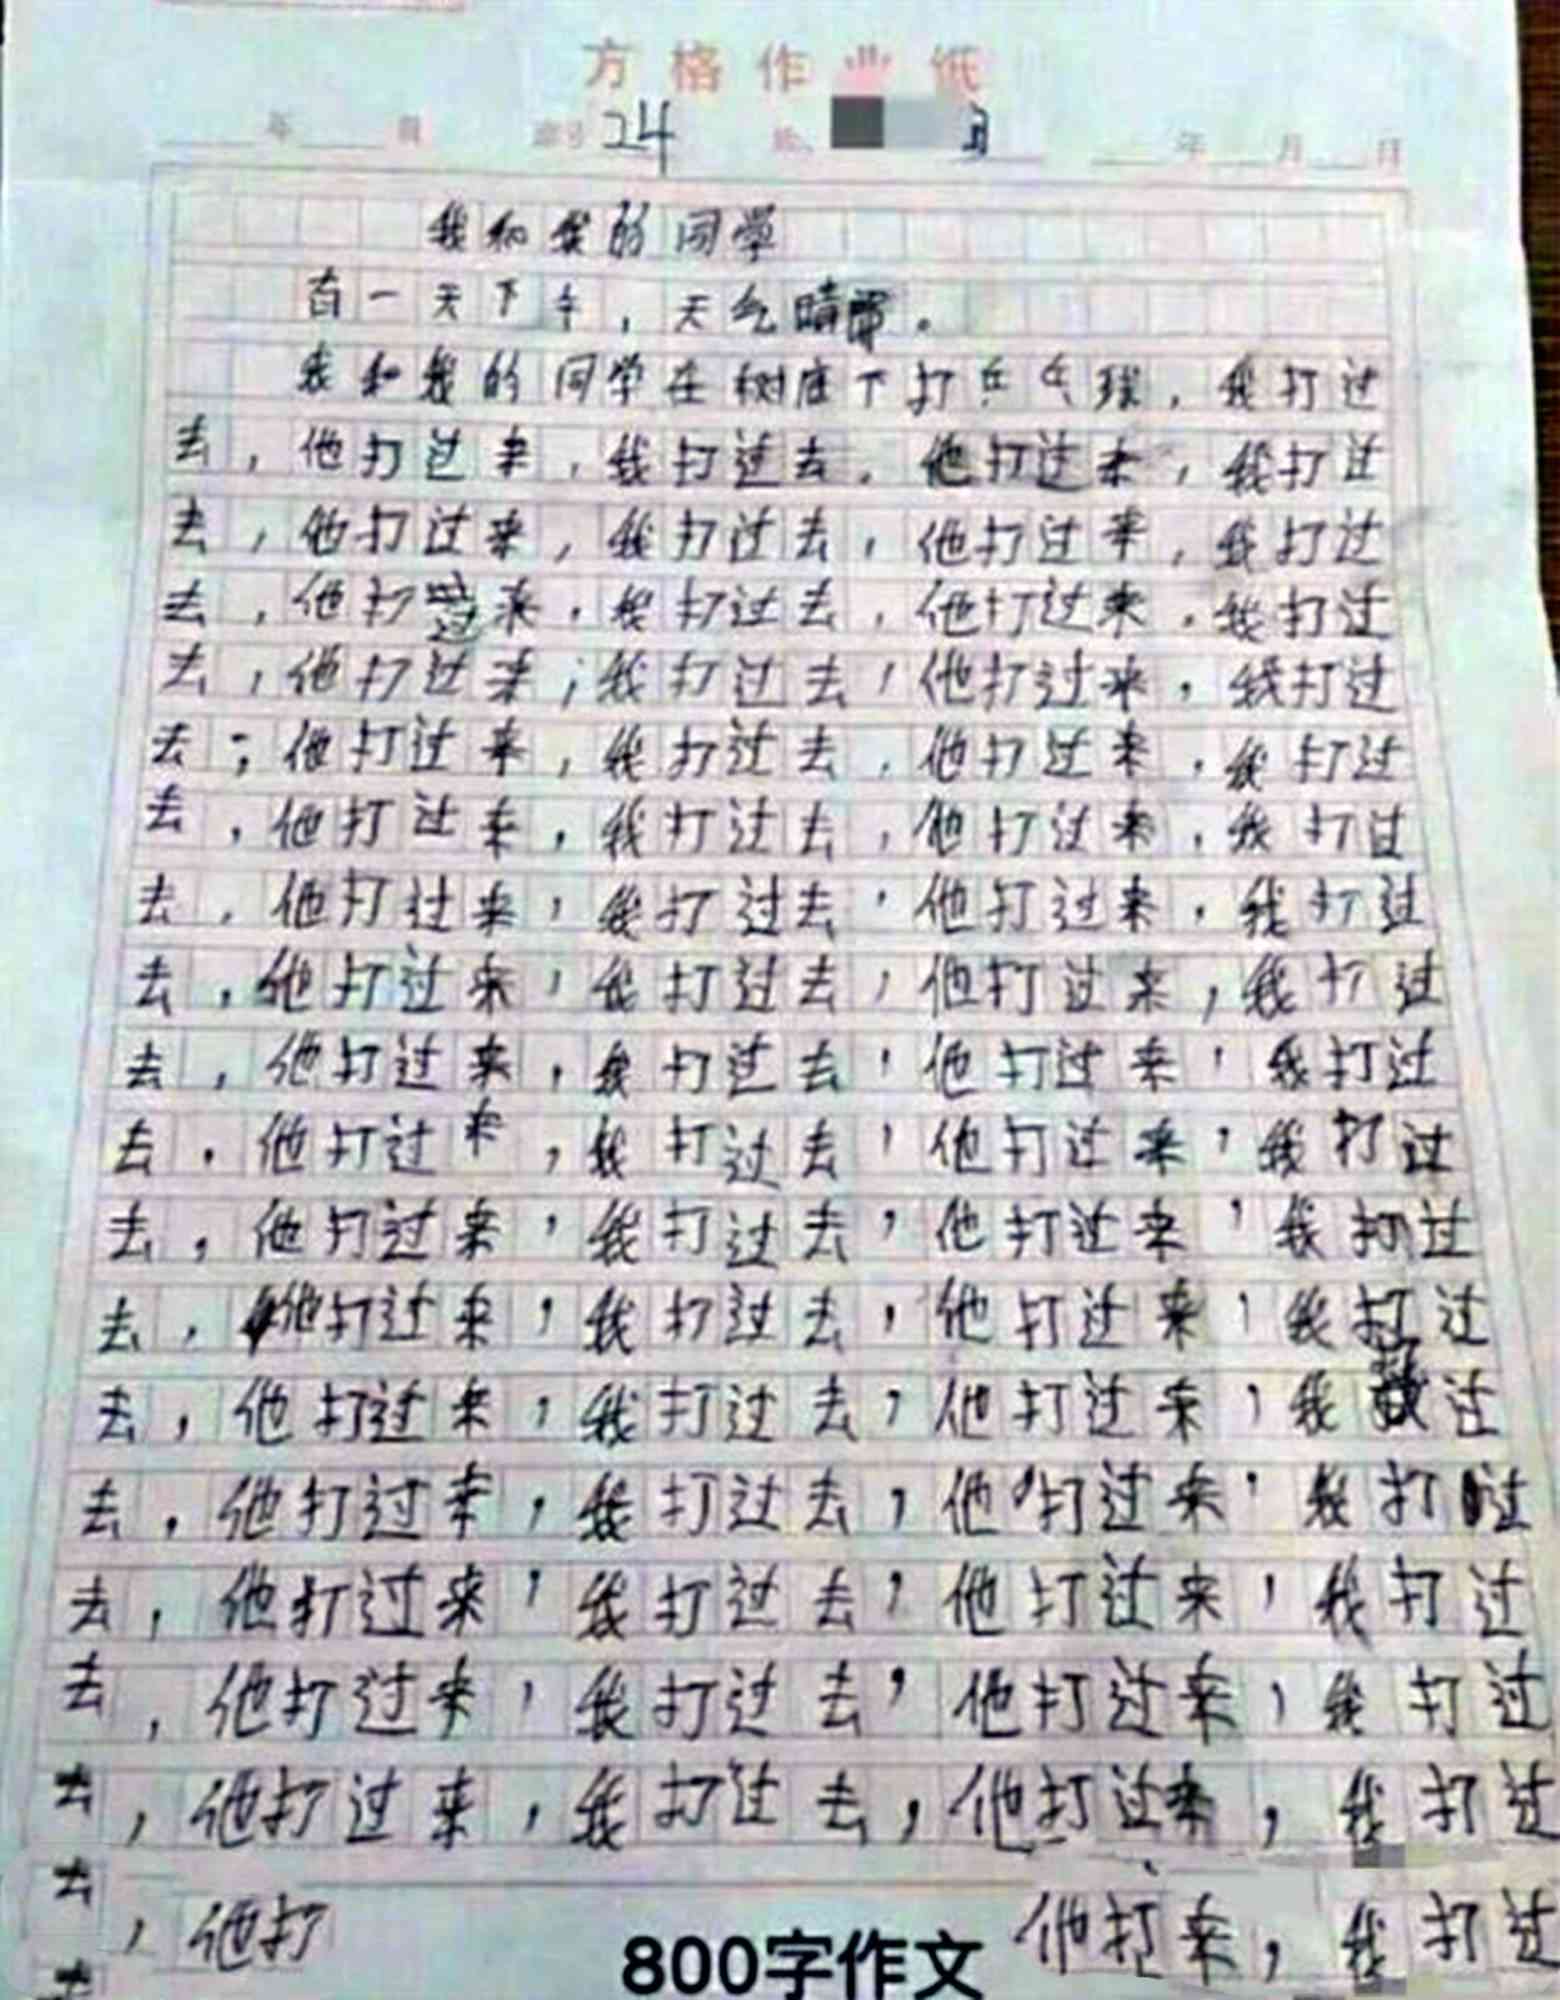 方格作业纸
年 班 座号 24 年 月 日
我和我的同学
有一天下午，天气晴。
我和我的同学在树底下打乒乓球，我打过
去，他打过来，我打过去，他打过来，我打过
去，他打过来，我打过去，他打过来，我打过
去，他打过来，我打过去，他打过来，我打过
去，他打过来；我打过去，他打过来，我打过
去；他打过来，我打过去，他打过来，我打过
去，他打过来，我打过去，他打过来，我打过
去，他打过来，我打过去，他打过来，我打过
去，他打过来，我打过去，他打过来，我打过
去，他打过来，我打过去，他打过来，我打过
去，他打过来，我打过去，他打过来，我打过
去，他打过来，我打过去，他打过来，我打过
去，他打过来，我打过去，他打过来，我打过
去，他打过来，我打过去，他打过来，我过
去，他打过来，我打过去，他打过来，我打过
去，他打过来，我打过去，他打过来，我打过
去，他打过来，我打过去，他打过来，我打过
去，他打过来，我打过去，他打过来，我打过
去，他打 他打来，我打过
800字作文